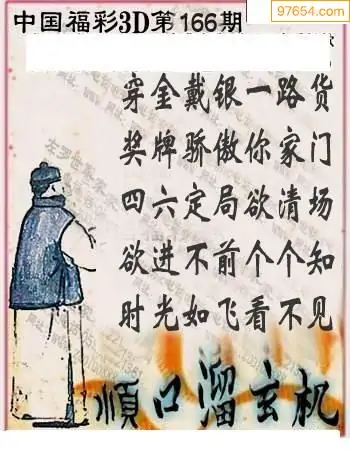 97654.com
中国福彩3D第166期
穿金戴银一路货
奖牌骄傲你家门
四六定局欲清场
欲进不前个个知
时光如飞看不见
顺口溜玄机